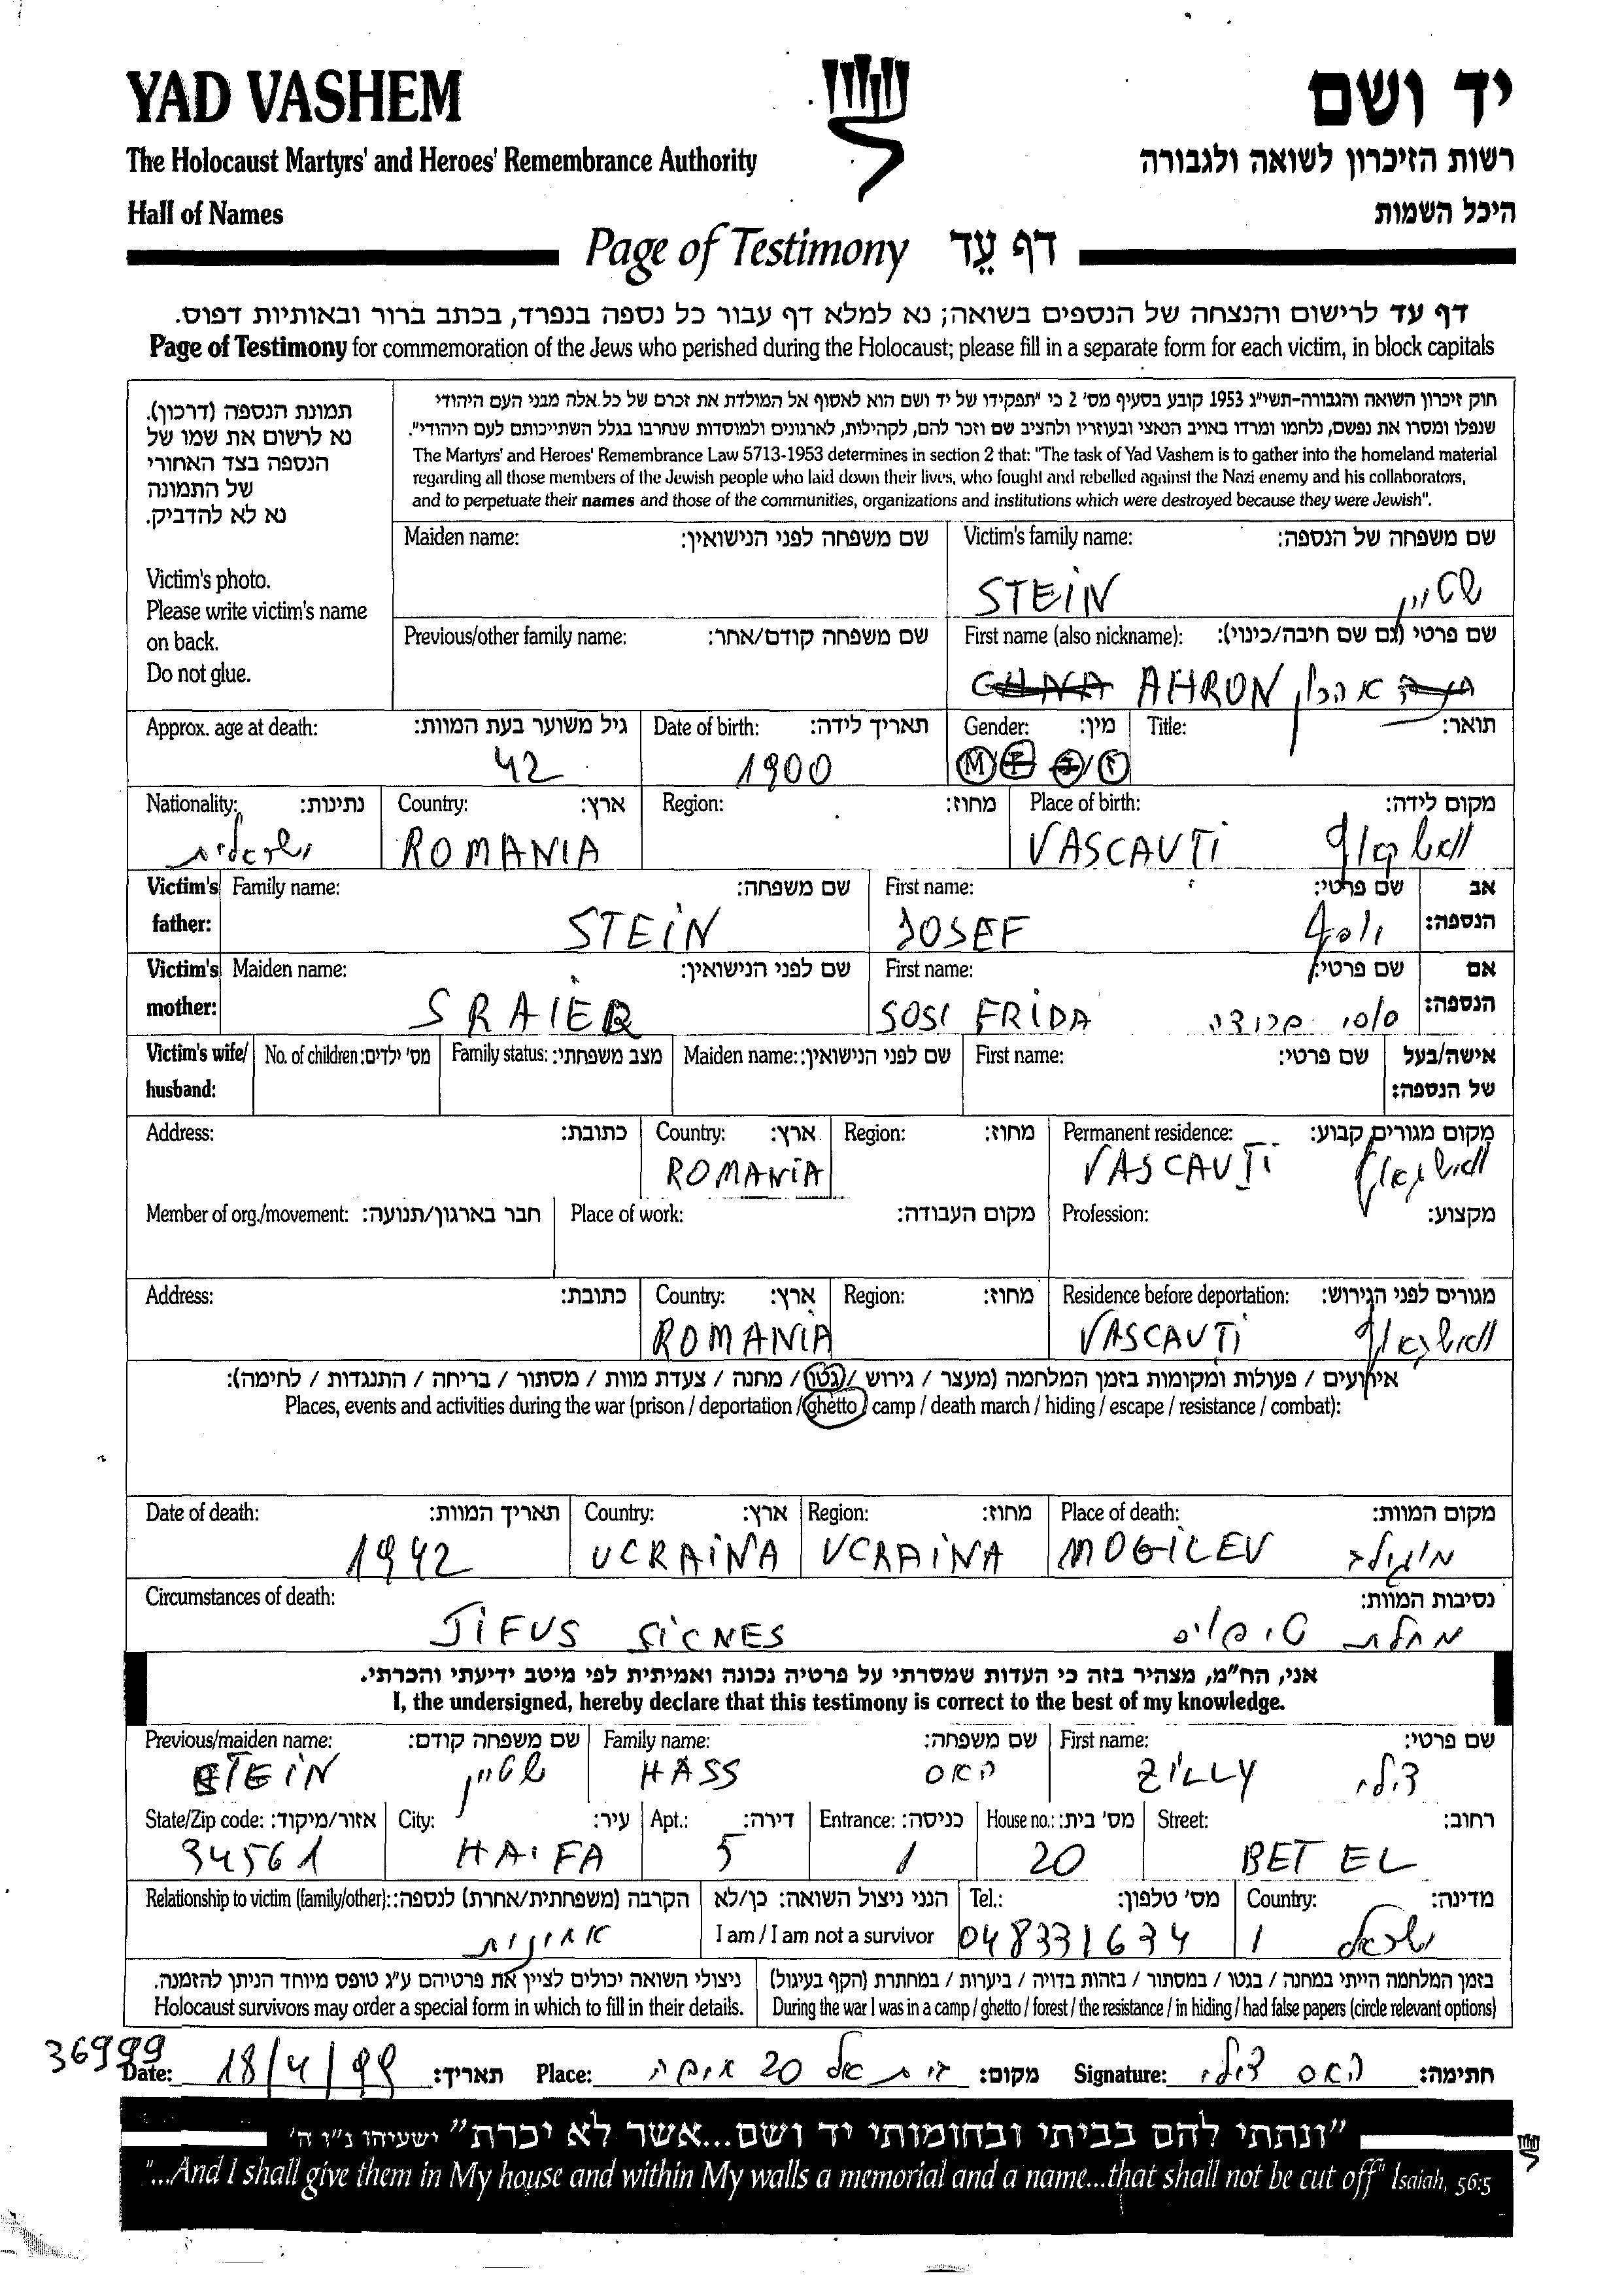 YAD VASHEM יד ושם
The Holocaust Martyrs' and Heroes' Remembrance Authority רשות הזיכרון לשואה ולגבורה
Hall of Names היכל השמות
Page of Testimony דף עֵד
דף עד לרישום והנצחה של הנספים בשואה; נא למלא דף עבור כל נספה בנפרד, בכתב ברור ובאותיות דפוס.
Page of Testimony for commemoration of the Jews who perished during the Holocaust; please fill in a separate form for each victim, in block capitals
תמונת הנספה (דרכון).
נא לרשום את שמו של
הנספה בצד האחורי
של התמונה
נא לא להדביק.
Victim's photo.
Please write victim's name
on back.
Do not glue.
חוק זיכרון השואה והגבורה-תשי"ג 1953 קובע בסעיף מס' 2 כי "תפקידו של יד ושם הוא לאסוף אל המולדת את זכרם של כל אלה מבני העם היהודי
שנפלו ומסרו את נפשם, נלחמו ומרדו באויב הנאצי ובעוזריו ולהציב שם וזכר להם, לקהילות, לארגונים ולמוסדות שנחרבו בגלל השתייכותם לעם היהודי".
The Martyrs' and Heroes' Remembrance Law 5713-1953 determines in section 2 that: "The task of Yad Vashem is to gather into the homeland material
regarding all those members of the Jewish people who laid down their lives, who fought and rebelled against the Nazi enemy and his collaborators,
and to perpetuate their names and those of the communities, organizations and institutions which were destroyed because they were Jewish".
Maiden name: שם משפחה לפני הנישואין: Victim's family name: שם משפחה של הנספה:
STEIN שטיין
Previous/other family name: שם משפחה קודם/אחר: First name (also nickname): שם פרטי (גם שם חיבה/כינוי):
AHRON אהרון
Approx. age at death: גיל משוער בעת המוות: Date of birth: תאריך לידה: Gender: מין: Title: תואר:
42 1900 M F נ/ז
Nationality: נתינות: Country: ארץ: Region: מחוז: Place of birth: מקום לידה:
ישראלית ROMANIA VASCAUTI וואשקאוץ
Victim's father: Family name: שם משפחה: First name: שם פרטי: אב הנספה:
STEIN JOSEF יוסף
Victim's mother: Maiden name: שם לפני הנישואין: First name: שם פרטי: אם הנספה:
SRAIER SOSI FRIDA סוסי פרידה
Victim's wife/ husband: No. of children: מס' ילדים: Family status: מצב משפחתי: Maiden name: שם לפני הנישואין: First name: שם פרטי: אישה/בעל של הנספה:
Address: כתובת: Country: ארץ: Region: מחוז: Permanent residence: מקום מגורים קבוע:
ROMANIA VASCAUTI וואשקאוץ
Member of org./movement: חבר בארגון/תנועה: Place of work: מקום העבודה: Profession: מקצוע:
Address: כתובת: Country: ארץ: Region: מחוז: Residence before deportation: מגורים לפני הגירוש:
ROMANIA VASCAUTI וואשקאוץ
אירועים / פעולות ומקומות בזמן המלחמה (מעצר / גירוש / גטו / מחנה / צעדת מוות / מסתור / בריחה / התנגדות / לחימה):
Places, events and activities during the war (prison / deportation / ghetto / camp / death march / hiding / escape / resistance / combat):
Date of death: תאריך המוות: Country: ארץ: Region: מחוז: Place of death: מקום המוות:
1942 UCRAINA UCRAINA MOGILEV מוגילב
Circumstances of death: נסיבות המוות:
TIFUS SICNES מחלת טיפוס
אני, הח"מ, מצהיר בזה כי העדות שמסרתי על פרטיה נכונה ואמיתית לפי מיטב ידיעתי והכרתי.
I, the undersigned, hereby declare that this testimony is correct to the best of my knowledge.
Previous/maiden name: שם משפחה קודם: Family name: שם משפחה: First name: שם פרטי:
STEIN שטיין HASS האס ZILLY צילי
State/Zip code: אזור/מיקוד: City: עיר: Apt.: דירה: Entrance: כניסה: House no.: מס' בית: Street: רחוב:
34561 HAIFA 5 1 20 BET EL
Relationship to victim (family/other): הקרבה (משפחתית/אחרת) לנספה: הנני ניצול השואה: כן/לא Tel.: מס' טלפון: Country: מדינה:
אחיינית I am / I am not a survivor 048331634 I ישראל
ניצולי השואה יכולים לציין את פרטיהם ע"ג טופס מיוחד הניתן להזמנה. בזמן המלחמה הייתי במחנה / בגטו / במסתור / בזהות בדויה / ביערות / במחתרת (הקף בעיגול)
Holocaust survivors may order a special form in which to fill in their details. During the war I was in a camp / ghetto / forest / the resistance / in hiding / had false papers (circle relevant options)
36999
Date: 18/4/99 תאריך: Place: בית אל 20 חיפה מקום: Signature: האס צילי חתימה:
"ונתתי להם בביתי ובחומותי יד ושם...אשר לא יכרת" ישעיהו נ"ו ה'
"...And I shall give them in My house and within My walls a memorial and a name...that shall not be cut off" Isaiah, 56:5